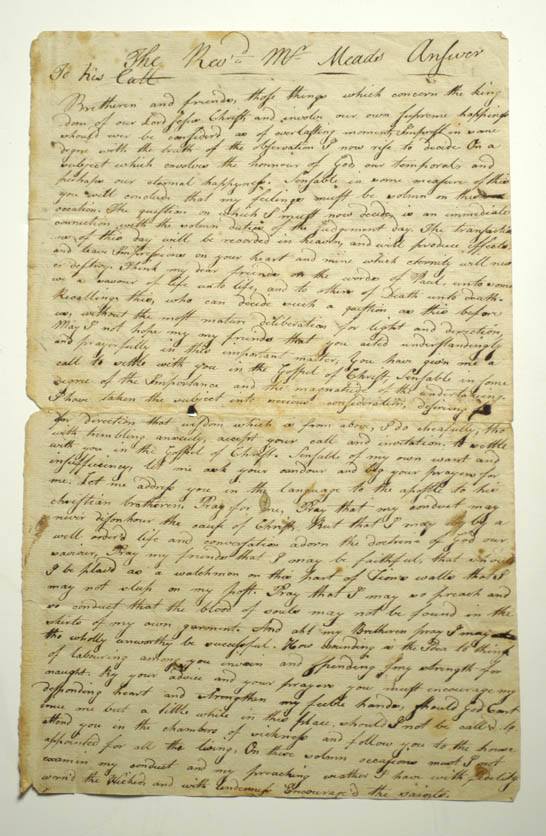 The Rev'd Mr Meads Answer
To his Call
Bretheren and friends, those things which concern the king
dom of our Lord Jesus Christ and involve our own supreme happiness
should ever be considerd as of everlasting moment, Imprest in some
degre with the truth of the observation I now rise to decide On a
subject which envolves the honnour of God our temporal and
perhaps our eternal happyness. Sensable in some measure of this
you will conclude that my feelings must be solemn on this
occation. The question on which I must now decide is an immediate
connection with the solemn duties of the judgement day. The transactio
ns of this day will be recorded in heaven, and will produce effects
and leave Impresions on your heart and mine which eternity will nev
er destroy. Think my dear friends on the words of Paul, unto some
we a savour of life unto life, and to others of Death unto death.
Recallings this, who can decide such a question as this before
us, without the most mature deliberation for light and direction,
May I not hope my my friends that you acted understandingly
and prayerfully in this important matter, You have given me a
call to settle with you in the Gospel of Christ, Sensable in some
degree of the Importance and the magnatude of the undertaking.
I have taken the subject into serious consideration, desiring
for direction that wisdom which is from above, I do chearfully, tho
with trembling anxiety, accept your call and invitation to settle
with you in the Gospel of Christ. Sensable of my own want and
insufficiency, let me ask your candour and beg your prayers for
me. Let me address you in the language to the apostle to his
christian bratheren. Pray for me, Pray that my conduct may
never dishonhour the cause of Christ, But that I may by a
well order'd life and conversation adorn the doctrine of God our
saviour, Pray my friends that I may be faithful, that should
I be placed as a watchmon on this part of Zions walls that I
may not sleep on my post. Pray that I may so preach and
so conduct that the blood of souls may not be found in the
skirts of my own garment. And ah! my Bretheren pray I may
tho wholly unworthy be successful. How wounding is the Idea to think
of labouring among you in vain and spending my strength for
naught. By your advice and your prayers you must encourage my
desponding heart and strengthen my feeble hands, should God Cont
inue me but a little while in this place, should I not be call'd to
attend you in the chambers of sickness and follow you to the house
appointed for all the living, On these solemn occasions must I not
examin my conduct and my preaching weather I have with fidelity
warn'd the Wicked, and with tenderness Encourage'd the saints.